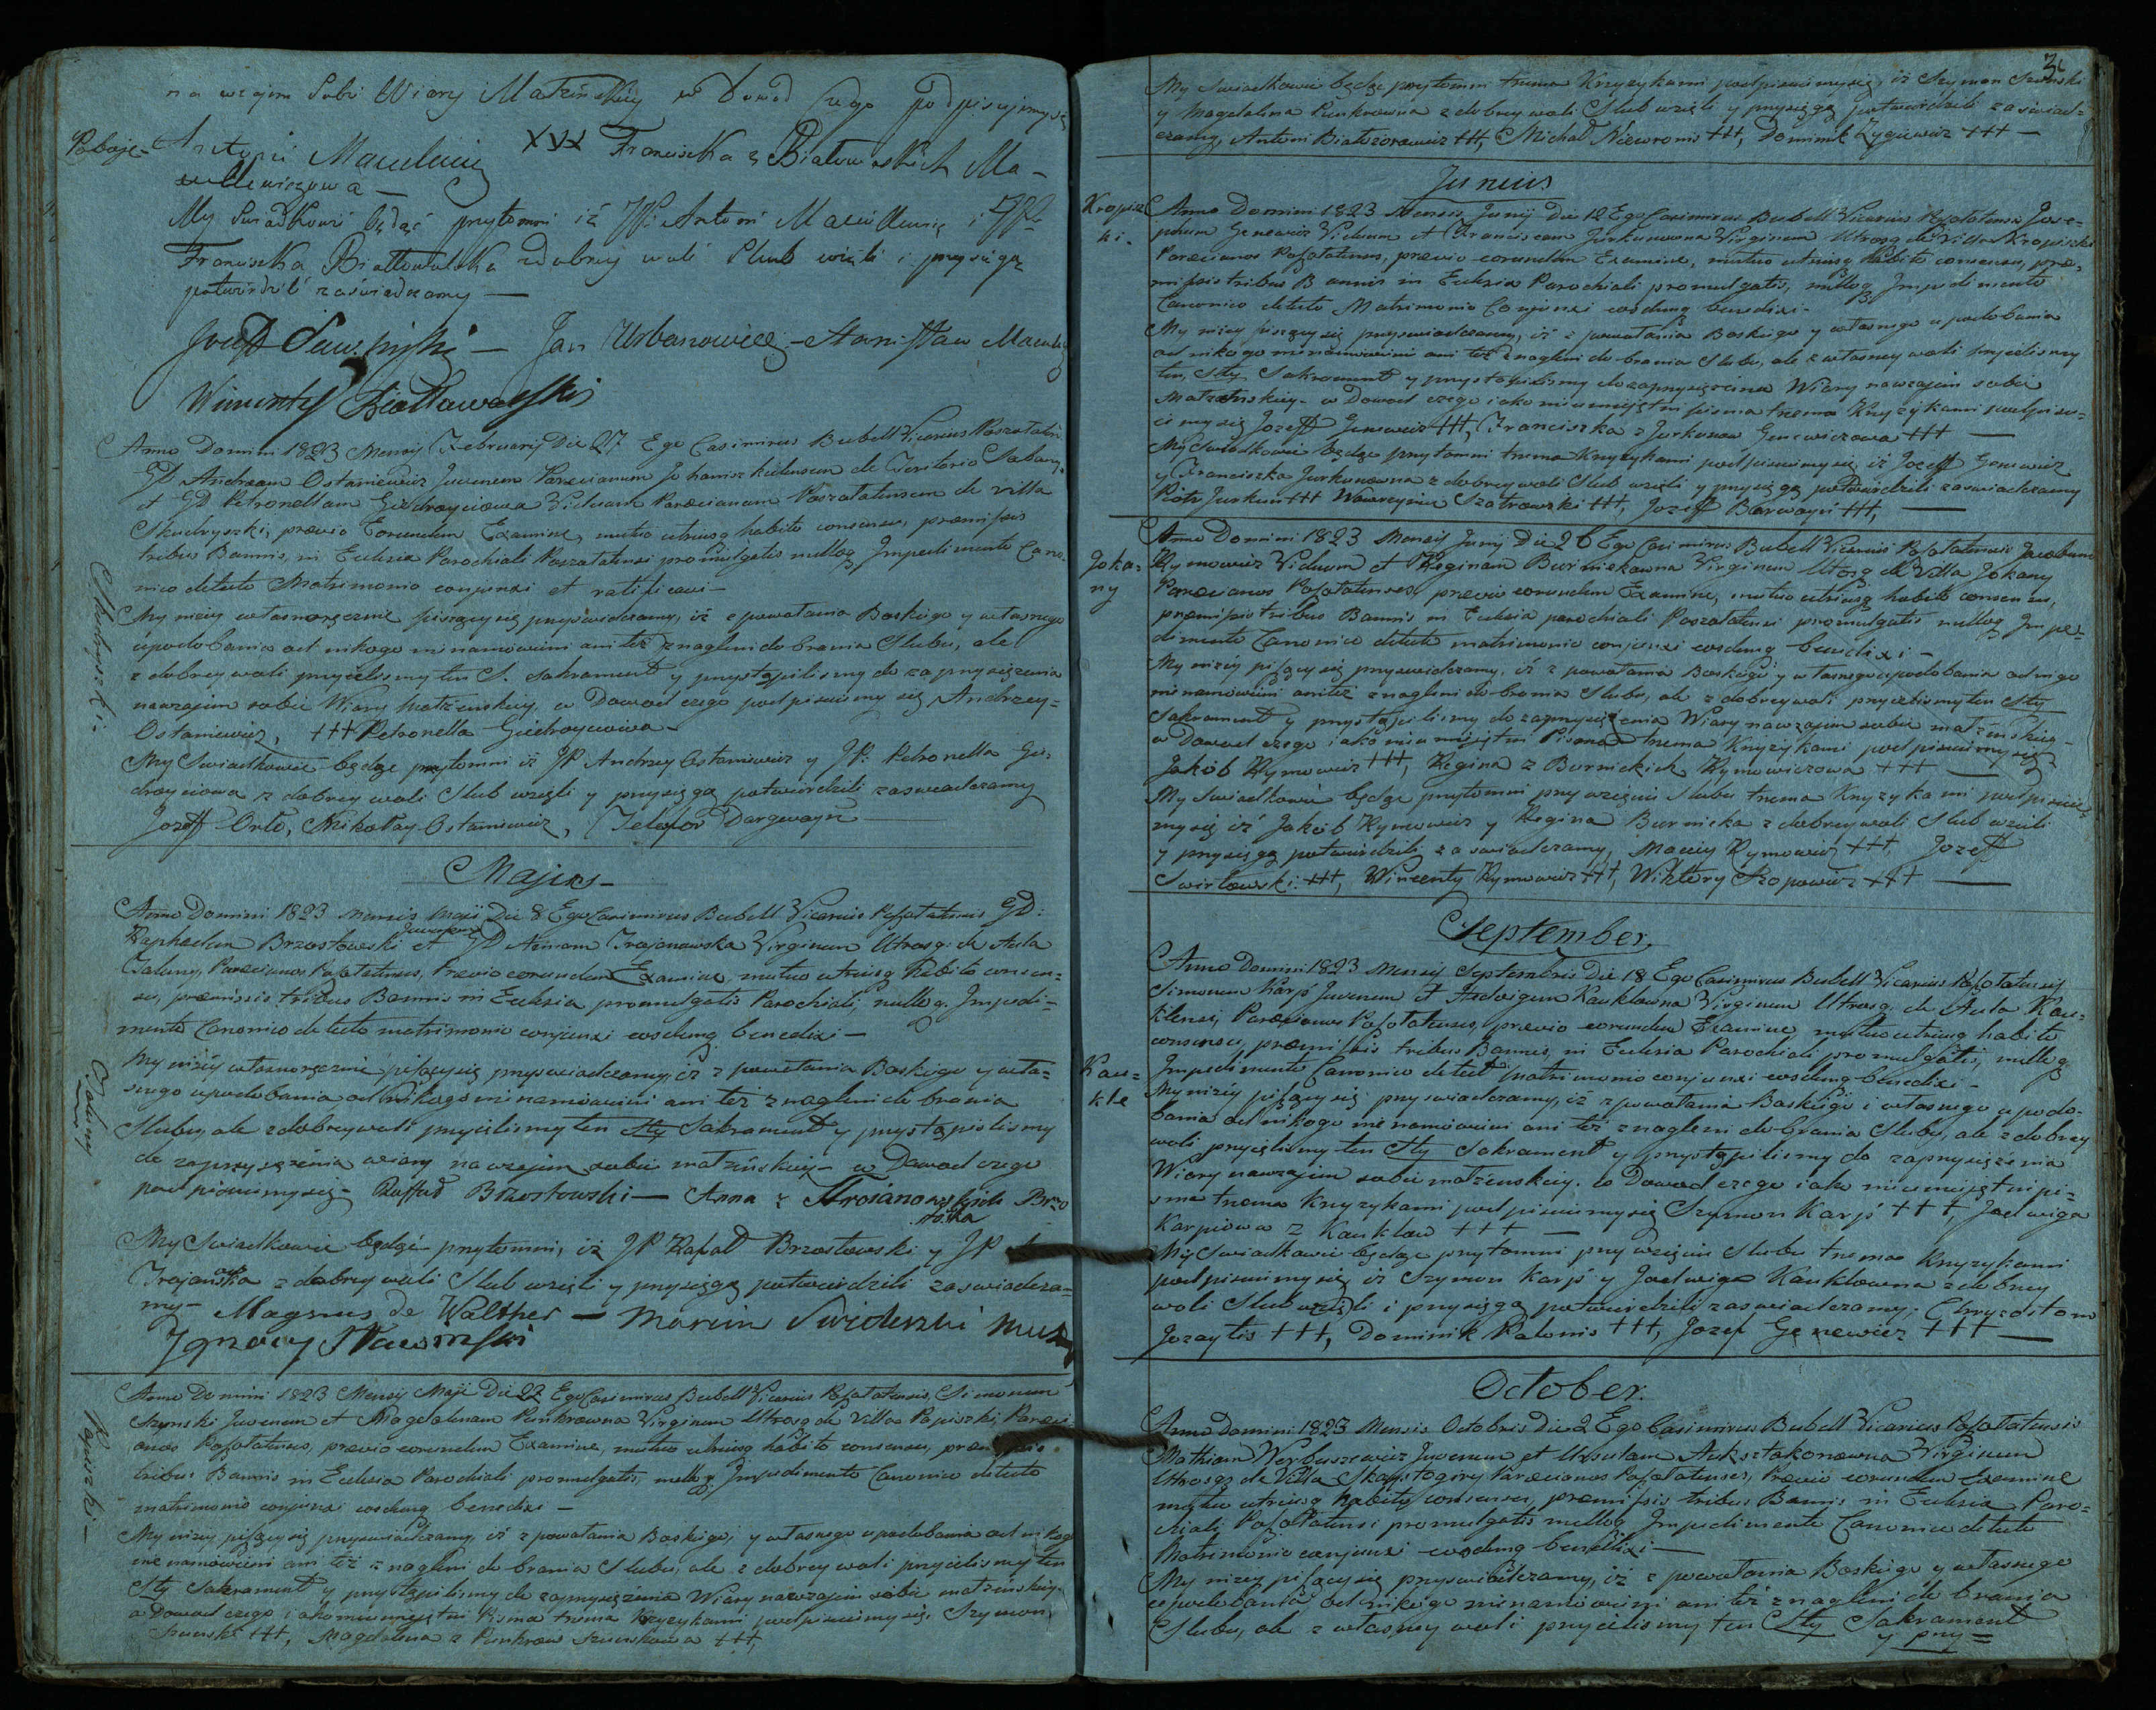 na wzajem Sobie Wiary Małżeńskiey w Dowod czego podpisujemy się
Poboje-
Antoni Maculewicz XXX Franciszka z Białłowalskich Ma-
culewiczowa —
My Swiadkowie będąc przytomni iż JP: Antoni Maculewicz i JP:
Franciszka Białłowalska z dobrey woli Slub wzieli i przysięgą
potwierdzili zaświadczamy —
Jozeff — Jan Urbanowicz — Stanisław Macule
Wincenty Białławolski
Anno Domini 1823 Mensis Februarij Die 27 Ego Casimirus Bubell Vicarius Poszołaten
GD Andream Ostaniewicz Juvenem Paraecianum Johaniszkielensem de Teritorio
et GD Petronellam Giedroyciowa Viduam Paraecianam Poszołatensem de villa
Skudryszki, praevio Eorundem Examine, mutuo utriusq habito consensu, praemissis
tribus Bannis, in Ecclesia Parochiali Poszołatensi promulgatis nulloq Impedimento Cano-
nico detecto Matrimonio conjunxi et ratificavi —
Skudryszki.
My niżey własnoręcznie piszący się przyswiadczamy, iż z powołania Boskiego y własnego
upodobania od nikogo nienamówieni ani też znagleni do brania Slubu, ale
z dobrey woli przyieliśmy ten S. Sakrament y przystąpiliśmy do zaprzysiężenia
nawzajem sobie Wiary Małżenskiey, w Dowod czego podpisuiemy się Andrzey
Ostaniewicz, +++ Petronella Giedroyciowa —
My Swiadkowie będąc przytomni iż JP Andrzey Ostaniewicz y JP: Petronella Gie-
droyciowa z dobrey woli Slub wzięli y przysięgą potwierdzili zaswiadczamy
Jozeff Orło, Mikołay Ostaniewicz, Telefor Dargwayn
Majus —
Anno Domini 1823 mensis Maii Die 8 Ego Casimirus Bubell Vicarius Poszołatensis GD:
Juvenem
Raphaelem Brzostowski et GD Annam Trojanowska Virginem Utrosq: de Aula
Taluny, Paraecianos Poszołatenses, Praevio eorundem Examine mutuo utriusq habito consen-
su, praemissis tribus Bannis in Ecclesia promulgatis Parochiali, nulloq. Impedi-
mento Canonico detecto matrimonio conjunxi eosdemq benedixi —
Talumy
My niżey własnoręcznie piszący się przyswiadczamy, iż z powołania Boskiego y wła-
snego upodobania od Nikogo nienamówieni ani też znagleni do brania
Slubu, ale z dobrey woli przyieliśmy ten Sty Sakrament y przystąpiliśmy
do zaprzysiężenia wiary nawzajem sobie małżeńskiey — w Dowod czego
podpisuiemy się Raffał Brzostowski — Anna z Troianowskich Brzo
stoska
My Swiadkowie będąc przytomni, iż JP Rafał Brzostowski y JP
Trojanowska z dobrey woli Slub wzięli y przysięgą potwierdzili zaswiadcza-
my — Magnus de Walther — Marcin Swiderski
Ignacy
Anno Domini 1823 Mensis Maji Die 22 Ego Casimirus Bubell Vicarius Poszołatensis, Simonem
Szumski Juvenem et Magdalenam Punkrowna Virginem Utrosq de Villa Papiszki Paraeci
anos Poszołatenses, praevio eorundem Examine, mutuo utriusq habito consensu, praemissis
tribus Bannis in Ecclesia Parochiali promulgatis, nulloq: Impedimento Canonico detecto
matrimonio conjunxi eosdemq benedixi —
Papiszki —
My niżey piszący się przyswiadczamy, iż z powołania Boskiego, y własnego upodobania od nikogo
nie namówieni ani też znagleni do brania Slubu, ale z dobrey woli przyieliśmy ten
Sty Sakrament y przystąpiliśmy do zaprzysiężenia Wiary nawzajem sobie małżeńskiey
w Dowod czego iako nieumieiętni Pisma trzema Krzyżykami podpisuiemy się. Szymon
Szumski +++, Magdalena z Punkrow Szumskowa +++
My Swiadkowie będąc przytomni trzema Krzyżykami podpisuiemy się, iż Szymon Szumski
y Magdalena Punkrowna z dobrey woli Slub wzięli y przysięgą potwierdzili zaświad-
czamy, Antoni Białozorowicz +++, Michał Niewronis +++, Dominik Zygiewicz +++ —
Junius
Kropisz
ki.
Anno Domini 1823 Mensis Junij Die 12 Ego Casimirus Bubell Vicarius Poszołatensis Jose-
phum Geniewicz Viduum et Franciscam Jurkunowna Virginem Utrosq de Villa Kropiszki
Paraecianos Poszołatenses, praevio eorundem Examine, mutuo utriusq habito consensu, prae-
missis tribus Bannis in Ecclesia Parochiali promulgatis, nulloq Impedimento
Canonico detecto Matrimonio Conjunxi eosdemq benedixi —
My niżey piszący się przyswiadczamy, iż z powołania Boskiego y własnego upodobania
od nikogo nienamówieni ani też znagleni do brania Slubu, ale z własney woli przyieliśmy
ten Sty Sakrament y przystąpiliśmy do zaprzysiężenia Wiary nawzajem sobie
Małżeńskiey — w Dowod czego iako nieumieiętni pisma trzema Krzyżykami podpisu-
iemy się Jozeff Geniewicz +++, Franciszka z Jurkunow Geniewiczowa +++ —
My Swiadkowie będąc przytomni trzema Krzyżykami podpisuiemy się iż Jozeff Geniewicz
y Franciszka Jurkunowna z dobrey woli Slub wzięli y przysięgą potwierdzili zaświadczamy
Piotr Jurkun +++ Wawrzyniec Szatrowski +++, Jozeff Barwayn +++,
Joka-
ny
Anno Domini 1823 Mensis Junij Die 26 Ego Casimirus Bubell Vicarius Poszołatensis Jacobum
Rymowicz Viduum et Reginam Burnickowna Virginem Utrosq de Villa Jokany
Paraecianos Poszołatenses, praevio eorundem Examine, mutuo utriusq habito consensu,
praemissis tribus Bannis in Ecclesia parochiali Poszołatensi promulgatis nulloq Impe-
dimento Canonico detecto matrimonio conjunxi eosdemq benedixi —
My niżey piszący się przyswiadczamy, iż z powołania Boskiego y własnego upodobania od nikogo
nienamówieni ani też znagleni do brania Slubu, ale z dobrey woli przyieliśmy ten Sty
Sakrament y przystąpiliśmy do zaprzysiężenia Wiary nawzajem sobie małżeńskiey —
w Dowod czego iako nieumieiętni Pisma trzema Krzyżykami podpisuiemy się
Jakób Rymowicz +++, Regina z Burnickich Rymowiczowa +++ —
My Swiadkowie będąc przytomni przy wzięciu Slubu trzema Krzyżykami podpisuie-
my się iż Jakób Rymowicz y Regina Burnicka z dobrey woli Slub wzieli
y przysięgą potwierdzili zaswiadczamy, Maciey Rymowicz +++ Jozeff
Swirtowski +++, Wincenty Rymowicz +++, Wiktory Szopowicz +++ —
September.
Anno Domini 1823 Mensis Septembris Die 18 Ego Casimirus Bubell Vicarius Poszołatensis
Simonem Karpś Juvenem et Hedvigem Kauklowna Virginem Utrosq de Aula Kau-
klensi, Paraecianos Poszołatenses, praevio eorundem Examine, mutuo utriusq habito
consensu, praemissis tribus Bannis, in Ecclesia Parochiali promulgatis, nulloq
Kau-
kle
Impedimento Canonico detecto Matrimonio conjunxi eosdemq benedixi —
My niżey piszący się przyswiadczamy, iż z powołania Boskiego i własnego upodo-
bania od nikogo nienamówieni ani też znagleni do brania Slubu, ale z dobrey
woli przyieliśmy ten Sty Sakrament y przystąpiliśmy do zaprzysiężenia
Wiary nawzajem sobie małżenskiey. w Dowod czego iako nieumieiętni pi-
sma trzema Krzyżykami podpisuiemy się Szymon Karpś +++, Jadwiga
Karpiowa z Kauklow +++ —
My Swiadkowie będąc przytomni przy wzięciu Slubu trzema Krzyżykami
podpisuiemy się iż Szymon Karpś y Jadwiga Kauklowna z dobrey
woli Slub wzieli i przysięgą potwierdzili zaswiadczamy, Chryzostom
Jozaytis +++, Dominik Kalonis +++, Jozef Geniewicz +++ —
October.
Anno Domini 1823 Mensis Octobris Die 2 Ego Casimirus Bubell Vicarius Poszołatensis
Mathiam Werbuszewicz Juvenem et Ursulam Auksztakonowna Virginem
Utrosq de Villa Skaystogiry Paraecianos Poszołatenses, Praevio eorundem Examine
mutuo utriusq habito consensu, praemissis tribus Bannis in Ecclesia Paro-
chiali Poszołatensi promulgatis nulloq Impedimento Canonico detecto
Matrimonio conjunxi eosdemq benedixi —
My niżey piszący się przyswiadczamy, iż z powołania Boskiego y własnego
upodobania od nikogo nienamówieni ani też znagleni do brania
Slubu, ale z własney woli przyieliśmy ten Sty Sakrament
y przy=